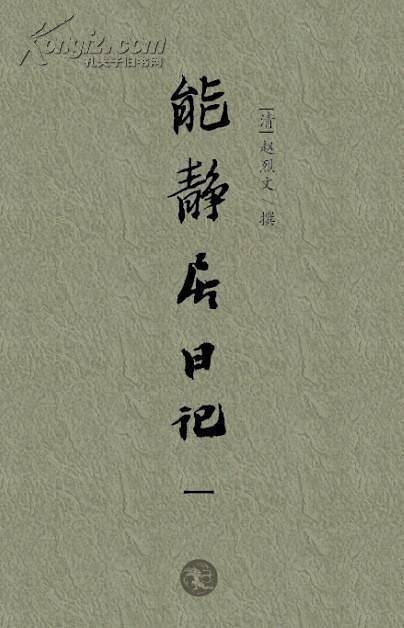 Kongfz.com
孔夫子旧书网
[清]赵烈文 撰
能静居日记
一